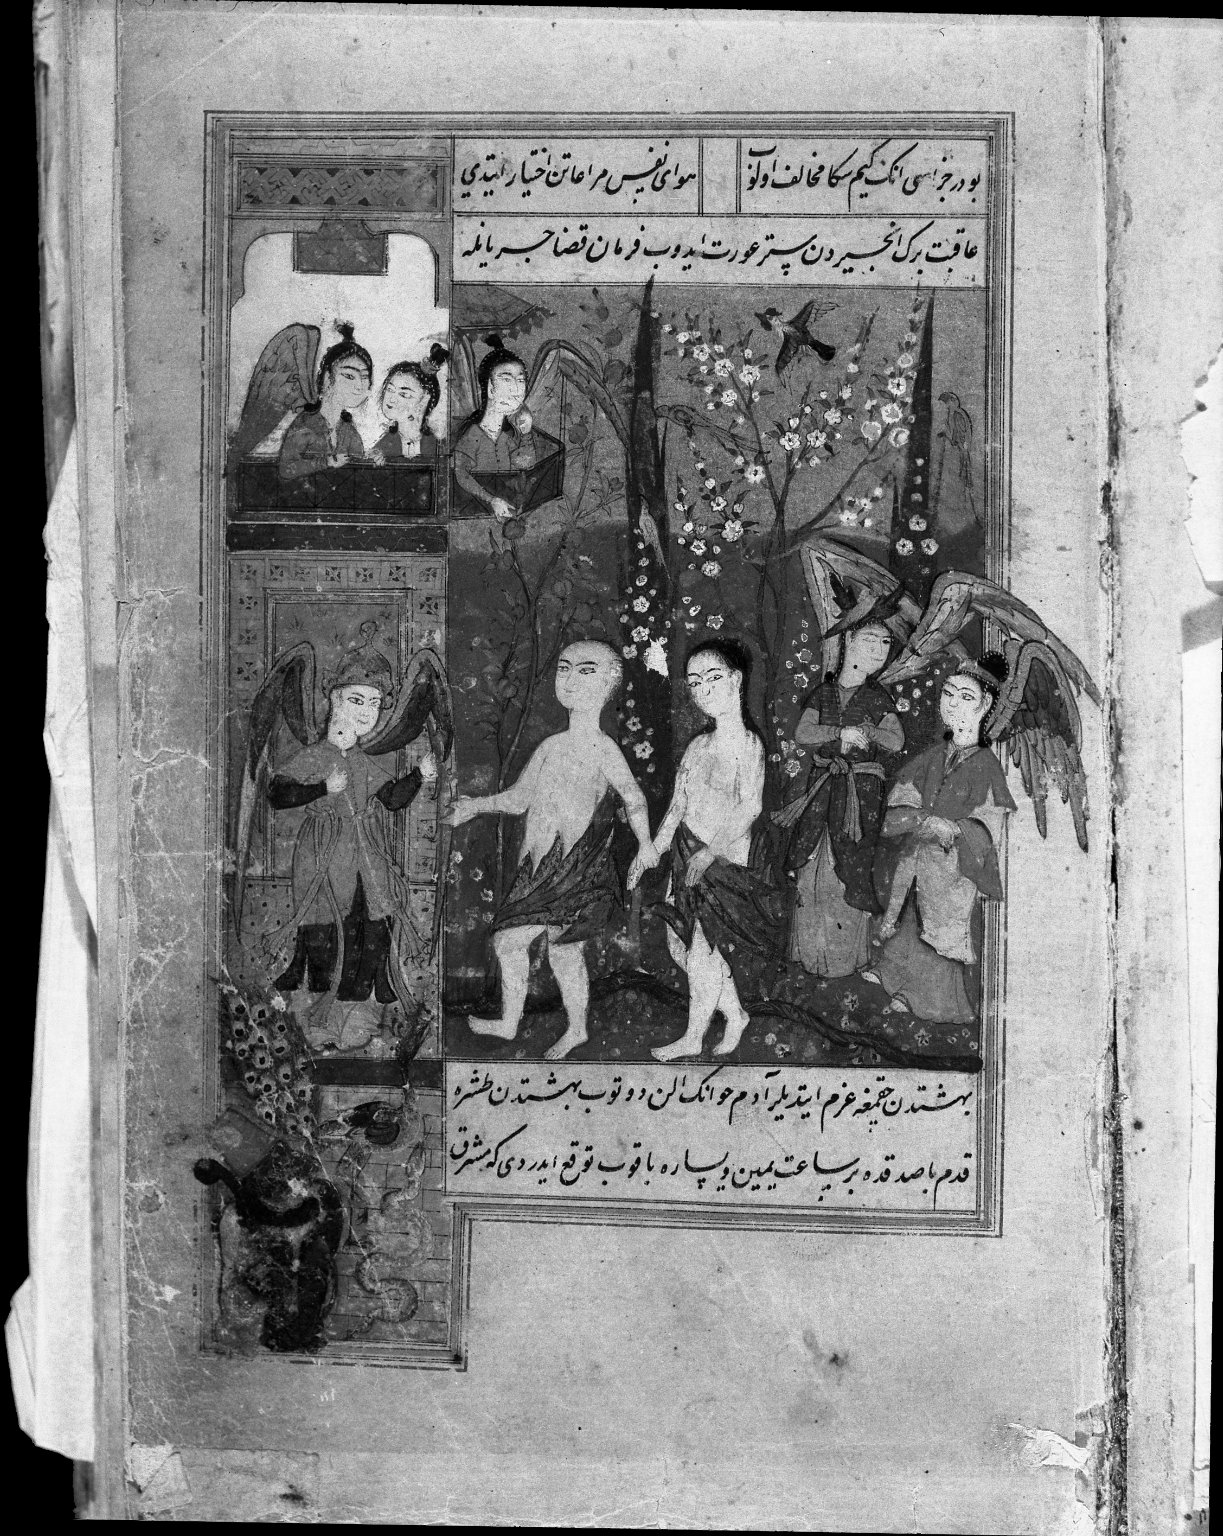 بو در جزاسی انک کیم سکا مخالف اولوب هوای نفس مراعاتن اختیار ایتدی
عاقبت برک انجیردن ستر عورت ایدوب فرمان قضا جریانله
بهشتدن چقمغه عزم ایتدیلر آدم حوانک الن دوتوب بهشتدن طشره
قدم باصدقده بر ساعت یمین ویساره باقوب توقع ایدردی که مشرق